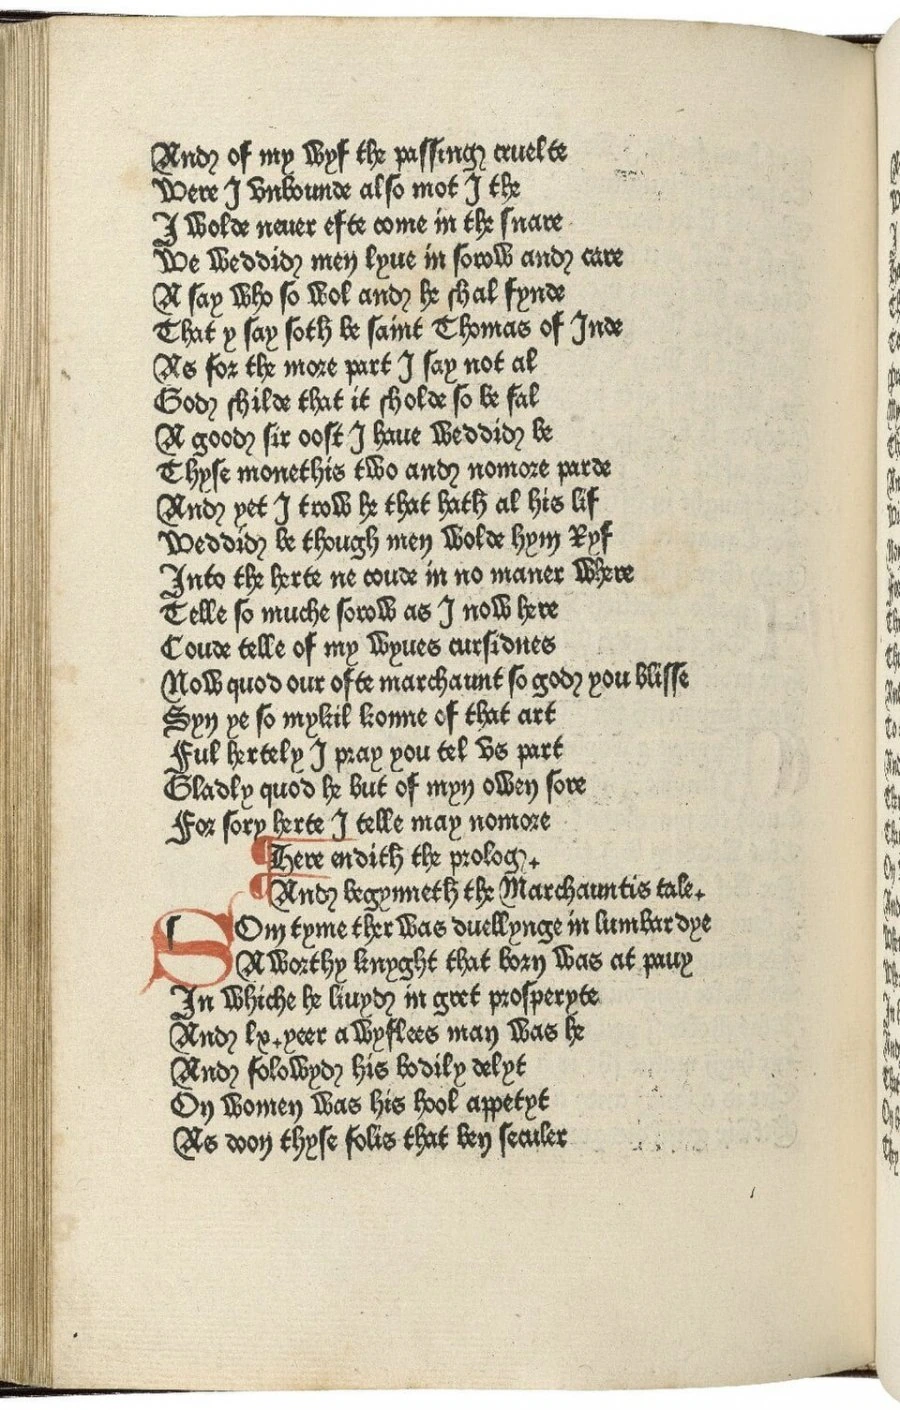 And of my wyf the passing cruelte
Were I vnbounde also mot I the
I wolde neuer efte come in the snare
We weddid men lyue in sorow and care
A say who so wol and he shal fynde
That y say soth be saint Thomas of Inde
As for the more part I say not al
God shilde that it sholde so be fal
A good sir oost I haue weddid be
Thyse monethis two and nomore parde
And yet I trow he that hath al his lif
Weddid be though men wolde hym Ryf
Into the herte ne coude in no maner where
Telle so muche sorow as I now here
Coude telle of my wyues cursidnes
Now quod our ofte marchaunt so god you blisse
Syn ye so mykil konne of that art
Ful hertely I pray you tel vs part
Gladly quod he but of myn owen sore
For sory herte I telle may nomore
Here endith the prolog.
And begynneth the Marchauntis tale.
SOm tyme ther was duellynge in lumbardye
A worthy knyght that born was at pauy
In whiche he liuyd in gret prosperyte
And lx.yeer a wyflees man was he
And folowyd his bodily delyt
On women was his hool appetyt
As doon thyse folis that ben seculer